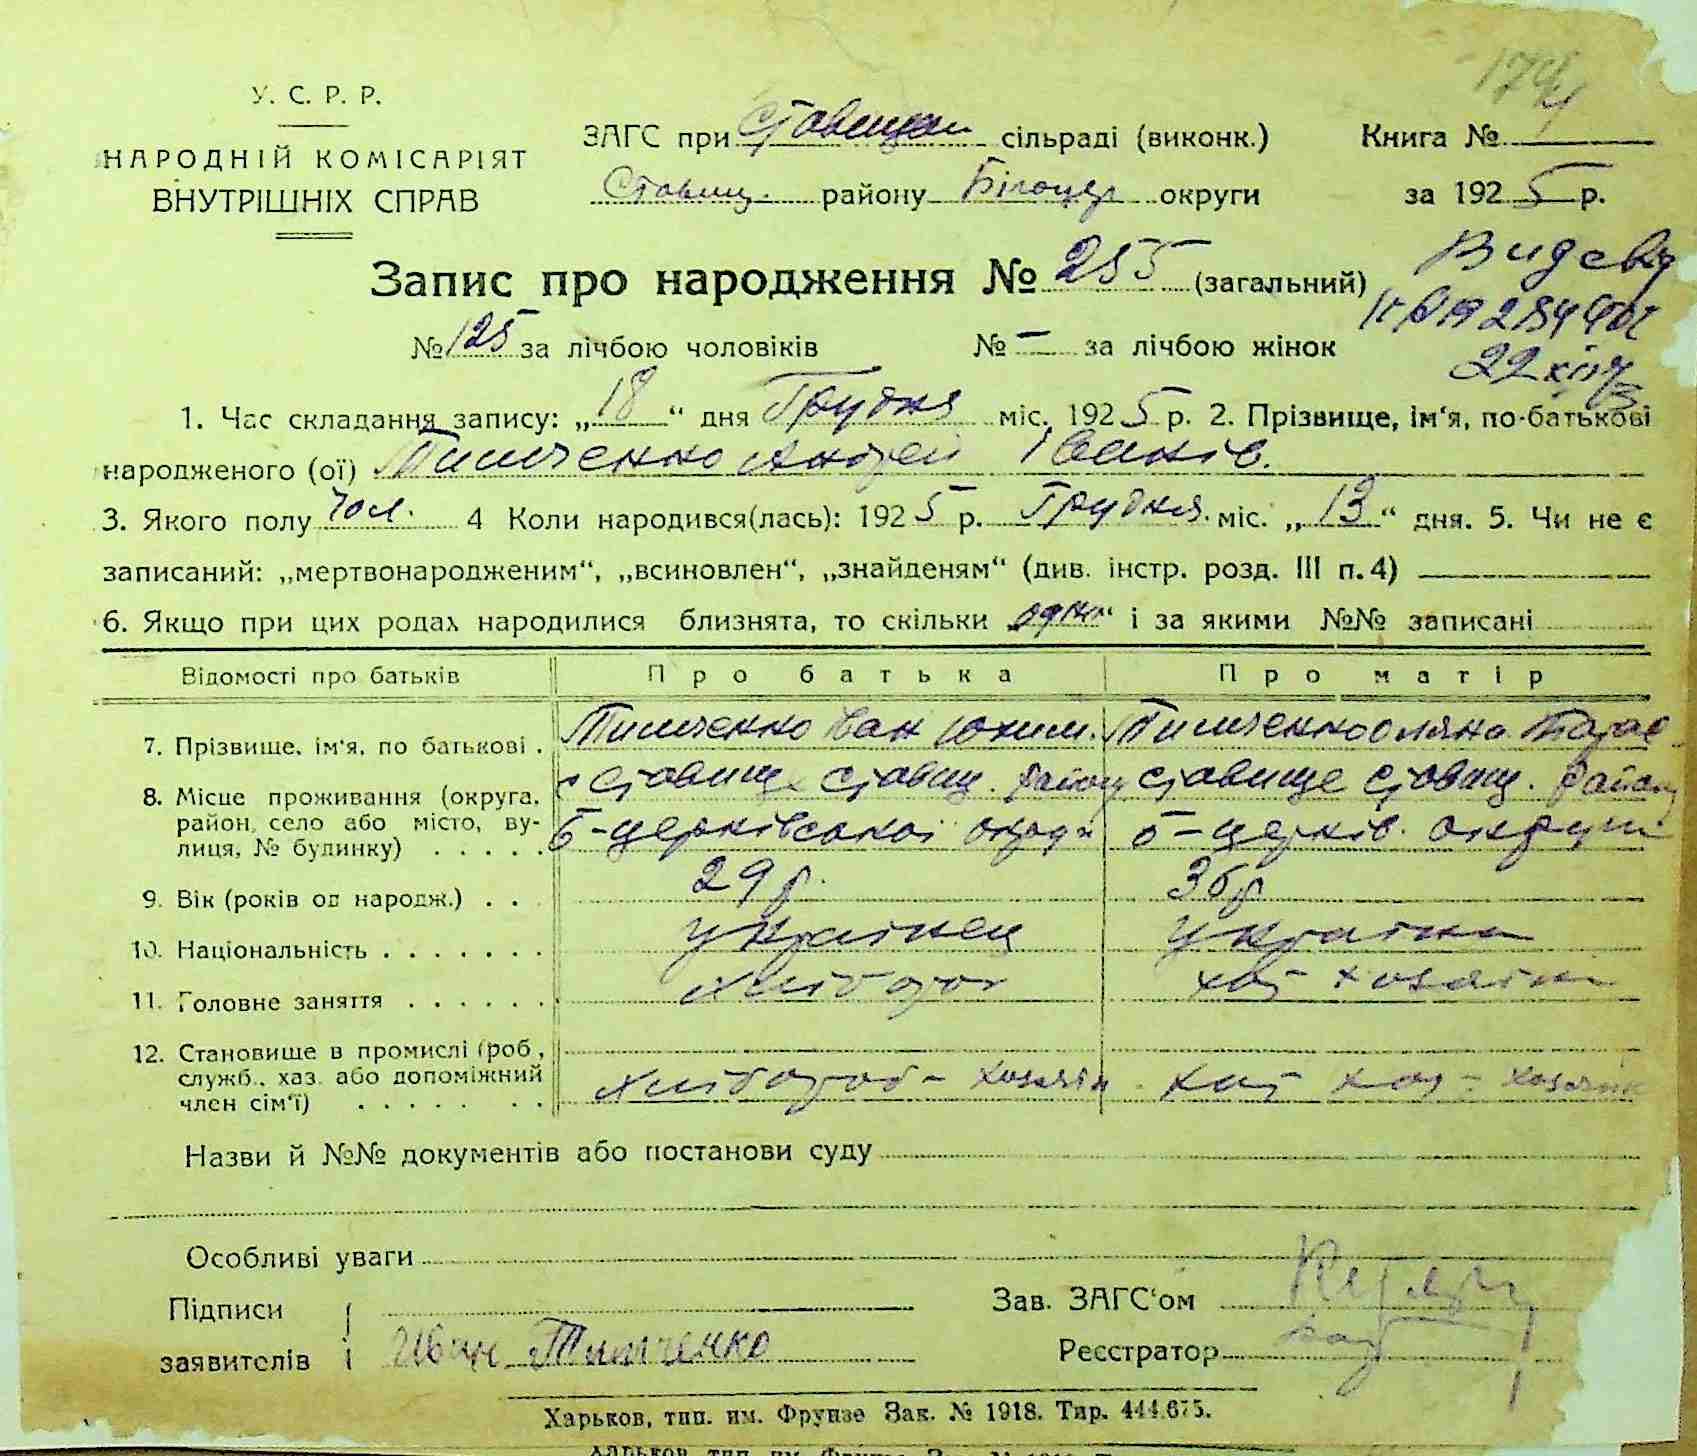 174
У. С. Р. Р.
НАРОДНІЙ КОМІСАРІЯТ
ВНУТРІШНІХ СПРАВ
ЗАГС при Ставищан сільраді (виконк.)
Книга №
Ставищ. району Білоцер округи
за 1925 р.
Запис про народження № 255 (загальний)
№ 125 за лічбою чоловіків
№ — за лічбою жінок
1. Час складання запису: „18“ дня Грудня міс. 1925 р. 2. Прізвище, ім‘я, по-батькові
народженого (ої) Тимченко Андрей Іванів.
3. Якого полу чол. 4 Коли народився(лась): 1925 р. Грудня міс. „13“ дня. 5. Чи не є
записаний: „мертвонародженим“, „всиновлен“, „знайденям“ (див. інстр. розд. III п. 4)
6. Якщо при цих родах народилися близнята, то скільки одно“ і за якими №№ записані
Відомості про батьків
Про батька
Про матір
7. Прізвище, ім‘я, по батькові .
Тимченко Іван Юхим.
Тимченко Оляна
8. Місце проживання (округа,
район, село або місто, ву-
лиця, № будинку) . . . . .
с Ставище Ставищ. району
Б-церківської округи
Ставище Ставищ. району
Б-церків. округи
9. Вік (років од народж.) . . .
29 р.
36 р
10. Національність . . . . . . .
українец
українка
11. Головне заняття . . . . . .
хлібороб
хат хозяйка
12. Становище в промислі (роб.,
служб., хаз. або допоміжний
член сім‘ї) . . . . . . .
хлібороб – хозяїн
хат хоз – хозяйк
Назви й №№ документів або постанови суду
Особливі уваги
Підписи
заявителів
Иван Тимченко
Зав. ЗАГС‘ом
Реєстратор
Харьков, тип. им. Фрунзе Зак. № 1918. Тир. 444.675.